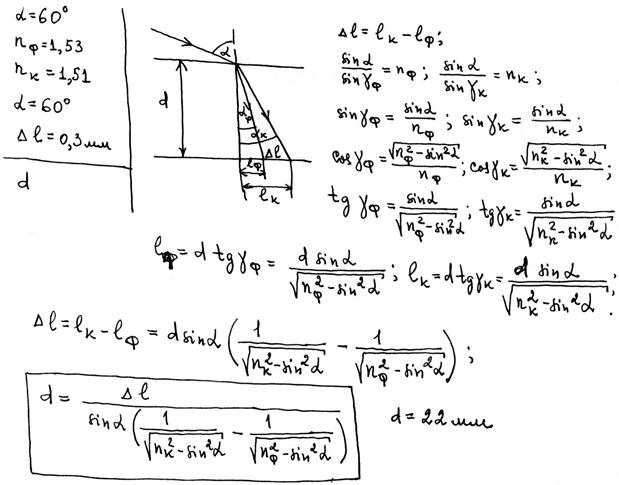 α=60°
nφ=1,53
nк=1,51
α=60°
Δl=0,3мм
d
α
d
αφ
αк
Δl
lφ
lк
Δl=lк-lφ;
sinα/sinγφ = nφ; sinα/sinγк = nк;
sinγφ = sinα/nφ; sinγк = sinα/nк;
cosγφ = √(nφ²-sin²α)/nφ; cosγк = √(nк²-sin²α)/nк;
tgγφ = sinα/√(nφ²-sin²α); tgγк = sinα/√(nк²-sin²α)
lφ = d tgγφ = d sinα/√(nφ²-sin²α); lк = d tgγк = d sinα/√(nк²-sin²α);
Δl = lк-lφ = d sinα (1/√(nк²-sin²α) - 1/√(nφ²-sin²α));
d = Δl/(sinα (1/√(nк²-sin²α) - 1/√(nφ²-sin²α)))
d = 22 мм